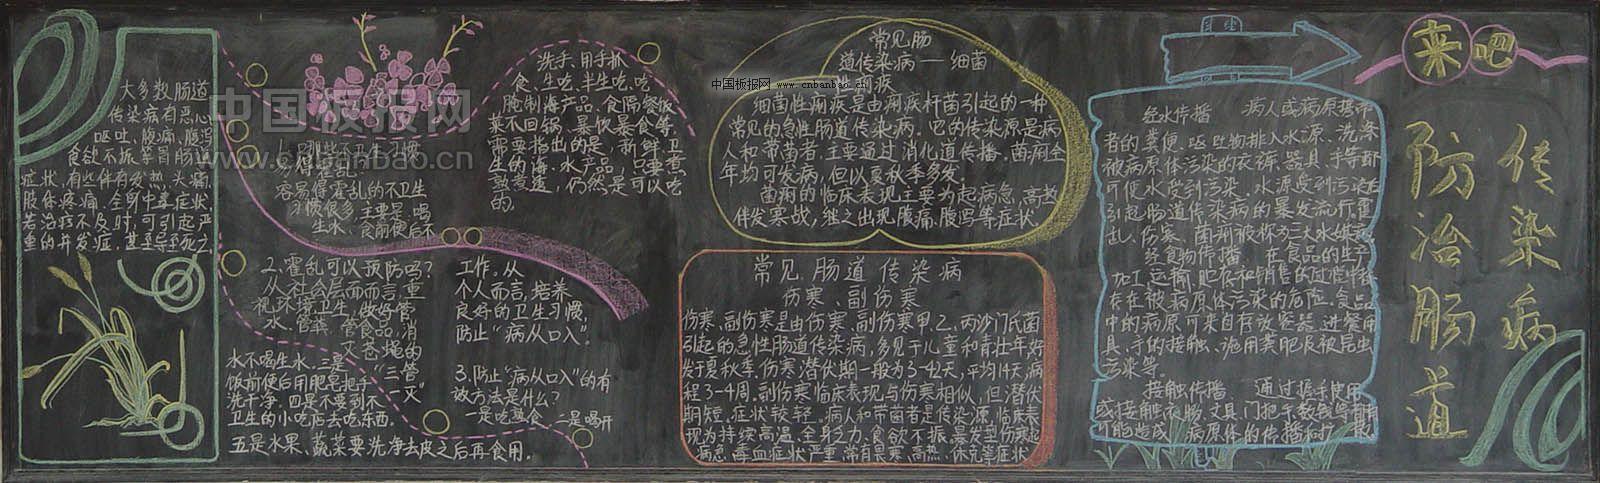 来吧
防治肠道
传染病
大多数肠道
传染病有恶心
呕吐、腹痛、腹泻
食欲不振等胃肠道
症状,有些伴有发热,头痛
肢体疼痛,全身中毒症状,
若治疗不及时,可引起严
重的并发症,甚至导至死亡
中国板报网
www.cnbanbao.cn
易得霍乱?
容易得霍乱的不卫生
习惯很多,主要是,喝
生水、食前便后不
洗手、用手抓
食、生吃、半生吃、吃
腌制海产品、食隔餐饭
菜不回锅、暴饮暴食等,
需要指出的是,新鲜、卫
生的海、水产品,只要煮
熟煮透,仍然是可以吃
的.
2.霍乱可以预防吗?
从社会层面而言,重
视环境卫生,做好管
水、管粪、管食品,消
灭苍蝇的
"三管
一灭"
工作。从
个人而言,培养
良好的卫生习惯,
防止"病从口入"。
3.防止"病从口入"的有
效方法是什么?
一是吃熟食 二是喝开
水不喝生水.三是
饭前便后用肥皂把手
洗干净.四是不要到不
卫生的小吃店去吃东西.
五是水果、蔬菜要洗净去皮之后再食用。
常见肠
道传染病——细菌
性痢疾
中国板报网 www.cnbanbao.cn
细菌性痢疾是由痢疾杆菌引起的一种
常见的急性肠道传染病。它的传染源是病
人和带菌者,主要通过消化道传播。菌痢全
年均可发病,但以夏秋季多发。
菌痢的临床表现主要为起病急,高热
伴发寒战,继之出现腹痛、腹泻等症状
常见肠道传染病
伤寒、副伤寒
伤寒、副伤寒是由伤寒、副伤寒甲、乙、丙沙门氏菌
引起的急性肠道传染病,多见于儿童和青壮年,好
发于夏秋季.伤寒潜伏期一般为3-42天,平均14天,病
程3-4周。副伤寒临床表现与伤寒相似,但潜伏
期短,症状较轻。病人和带菌者是传染源,临床表
现为持续高温、全身乏力、食欲不振.暴发型伤寒起
病急,毒血症状严重,常有畏寒、高热、休克等症状
经水传播 病人或病原携带
者的粪便、呕吐物排入水源、洗涤
被病原体污染的衣裤、器具、手等都
可使水受到污染,水源受到污染
引起肠道传染病的暴发流行,霍
乱、伤寒、菌痢被称为三大水媒
经食物传播. 在食品的生产
加工,运输,贮存和销售的过程中都
存在被病原体污染的危险,食品
中的病原可来自存放容器、进餐用
具、手的接触、施用粪肥及被昆虫
污染等。
接触传播 通过握手使用
或接触衣肠、文具、门把手、教钱等都有
可能造成 病原体的传播和扩散